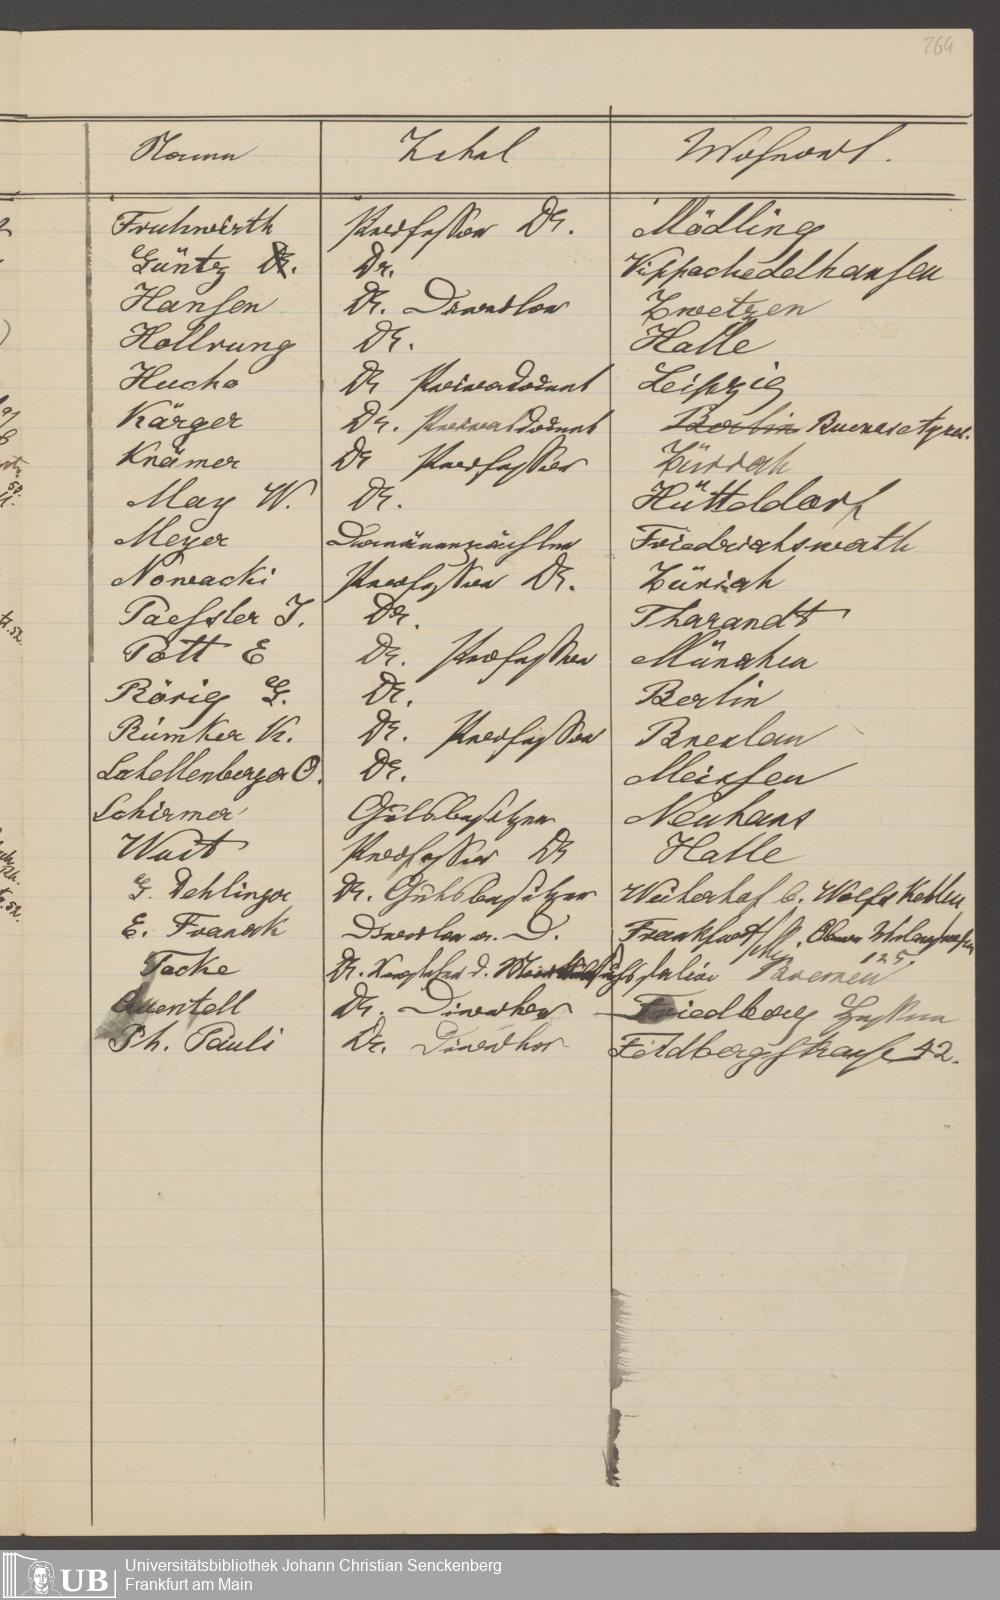 264
Namen Titel Wohnort.
Fruhwirth Professor Dr. Mödling
Güntz Dr. Dr. Vippachedelhausen
Hansen Dr. Direktor Zwetzen
Hollrung Dr. Halle
Hucho Dr Privatdozent Leipzig
Kärger Dr. Privatdozent Berlin Buenos Ayres.
Krämer Dr Professor Zürich
May W. Dr. Hütteldorf
Meyer Domänenpächter Friedrichswerth
Nowacki Professor Dr. Zürich
Paessler J. Dr. Tharandt
Pott E Dr. Professor München
Rörig G. Dr. Berlin
Rümker K. Dr. Professor Breslau
Schellenberger O. Dr. Meissen
Schirmer Gutsbesitzer Neuhaus
Wust Professor Dr Halle
G. Dehlinger Dr. Gutsbesitzer Weilerhof b. Wolfskehlen
E. Franck Direktor a. D. Frankfurt a/M. Obere 125.
Tacke Dr. Vorsteher d. Moor Versuchsstation Bremen
Quentell Dr. Direktor Friedberg Hessen
Ph. Pauli Dr. Direktor Feldbergstrasse 42.
UB Universitätsbibliothek Johann Christian Senckenberg
Frankfurt am Main